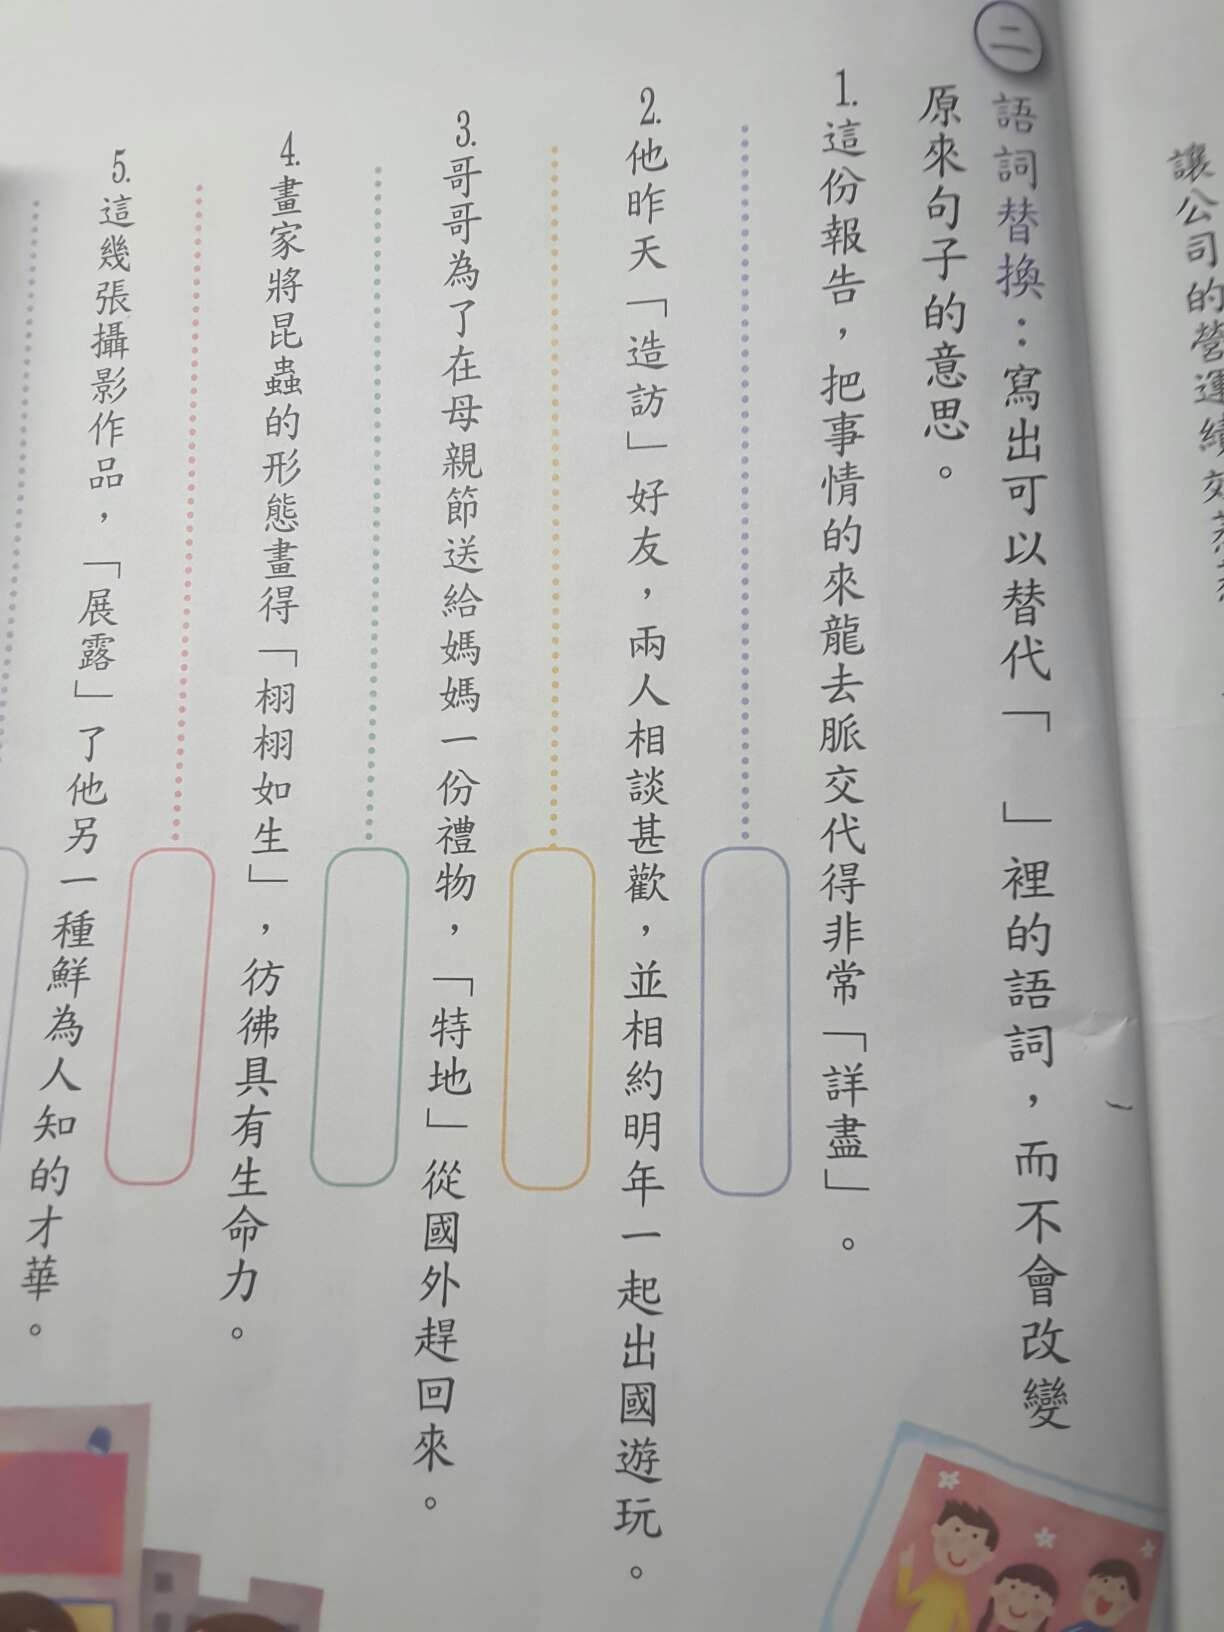 讓公司的營運績效
二 語詞替換：寫出可以替代「　」裡的語詞，而不會改變
原來句子的意思。
1. 這份報告，把事情的來龍去脈交代得非常「詳盡」。
2. 他昨天「造訪」好友，兩人相談甚歡，並相約明年一起出國遊玩。
3. 哥哥為了在母親節送給媽媽一份禮物，「特地」從國外趕回來。
4. 畫家將昆蟲的形態畫得「栩栩如生」，彷彿具有生命力。
5. 這幾張攝影作品，「展露」了他另一種鮮為人知的才華。